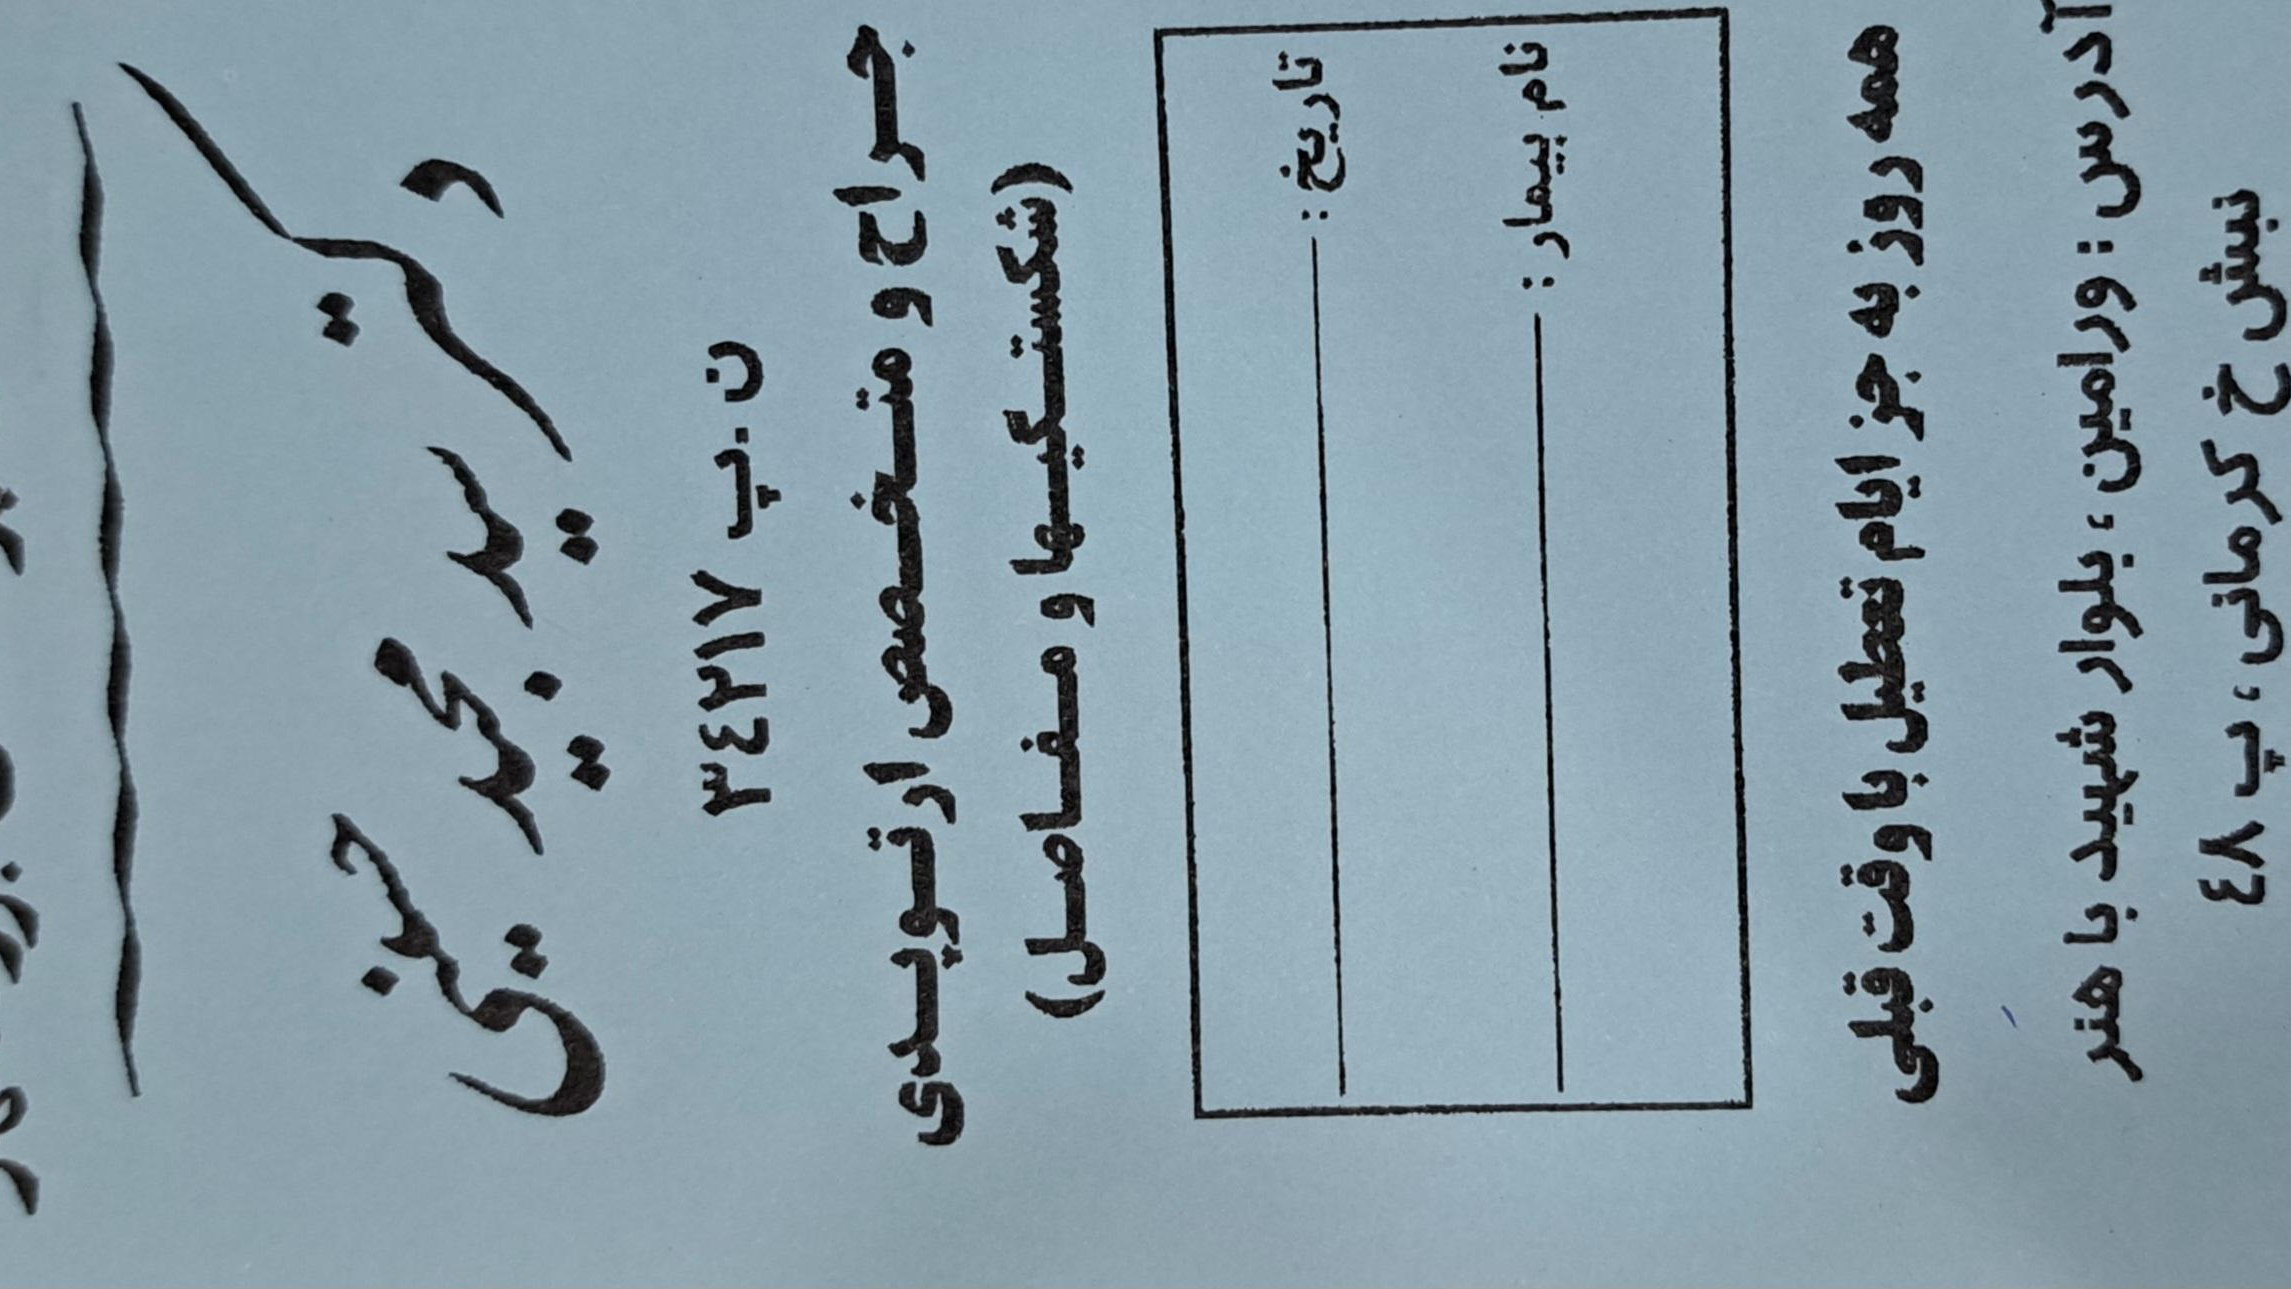 دکتر سید مجید حسینی
ن.پ ۳۴۲۱۷
جراح و متخصص ارتوپدی
(شکستگیها و مفاصل)
تاریخ :
نام بیمار :
همه روز به جز ایام تعطیل با وقت قبلی
آدرس : ورامین ، بلوار شهید با هنر
نبش خ کرمانی ، پ ۴۸